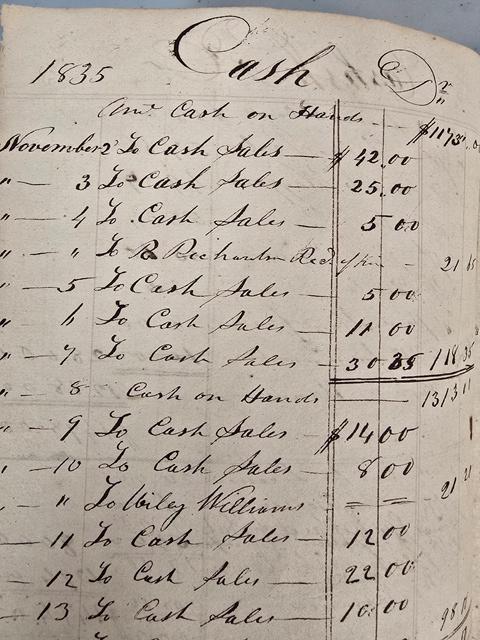 1835 Cash Dr
Amt. Cash on Hands — $1173.
November 2 To Cash Sales — $ 42.00
" — 3 To Cash Sales — 25.00
" — 4 To Cash Sales — 5 00
" — " To R Richardson Recd of him - 21
" — 5 To Cash Sales — 5 00
" — 6 To Cash Sales — 11 00
" — 7 To Cash Sales — 30 35 118 35
" — 8 Cash on Hands — 1313 11
" — 9 To Cash Sales — $14 00
— 10 To Cash Sales — 8 00
— " To Wiley Williams = = 21 21
— 11 To Cash Sales — 12 00
— 12 To Cash Sales — 22 00
— 13 To Cash Sales — 10. 00 98